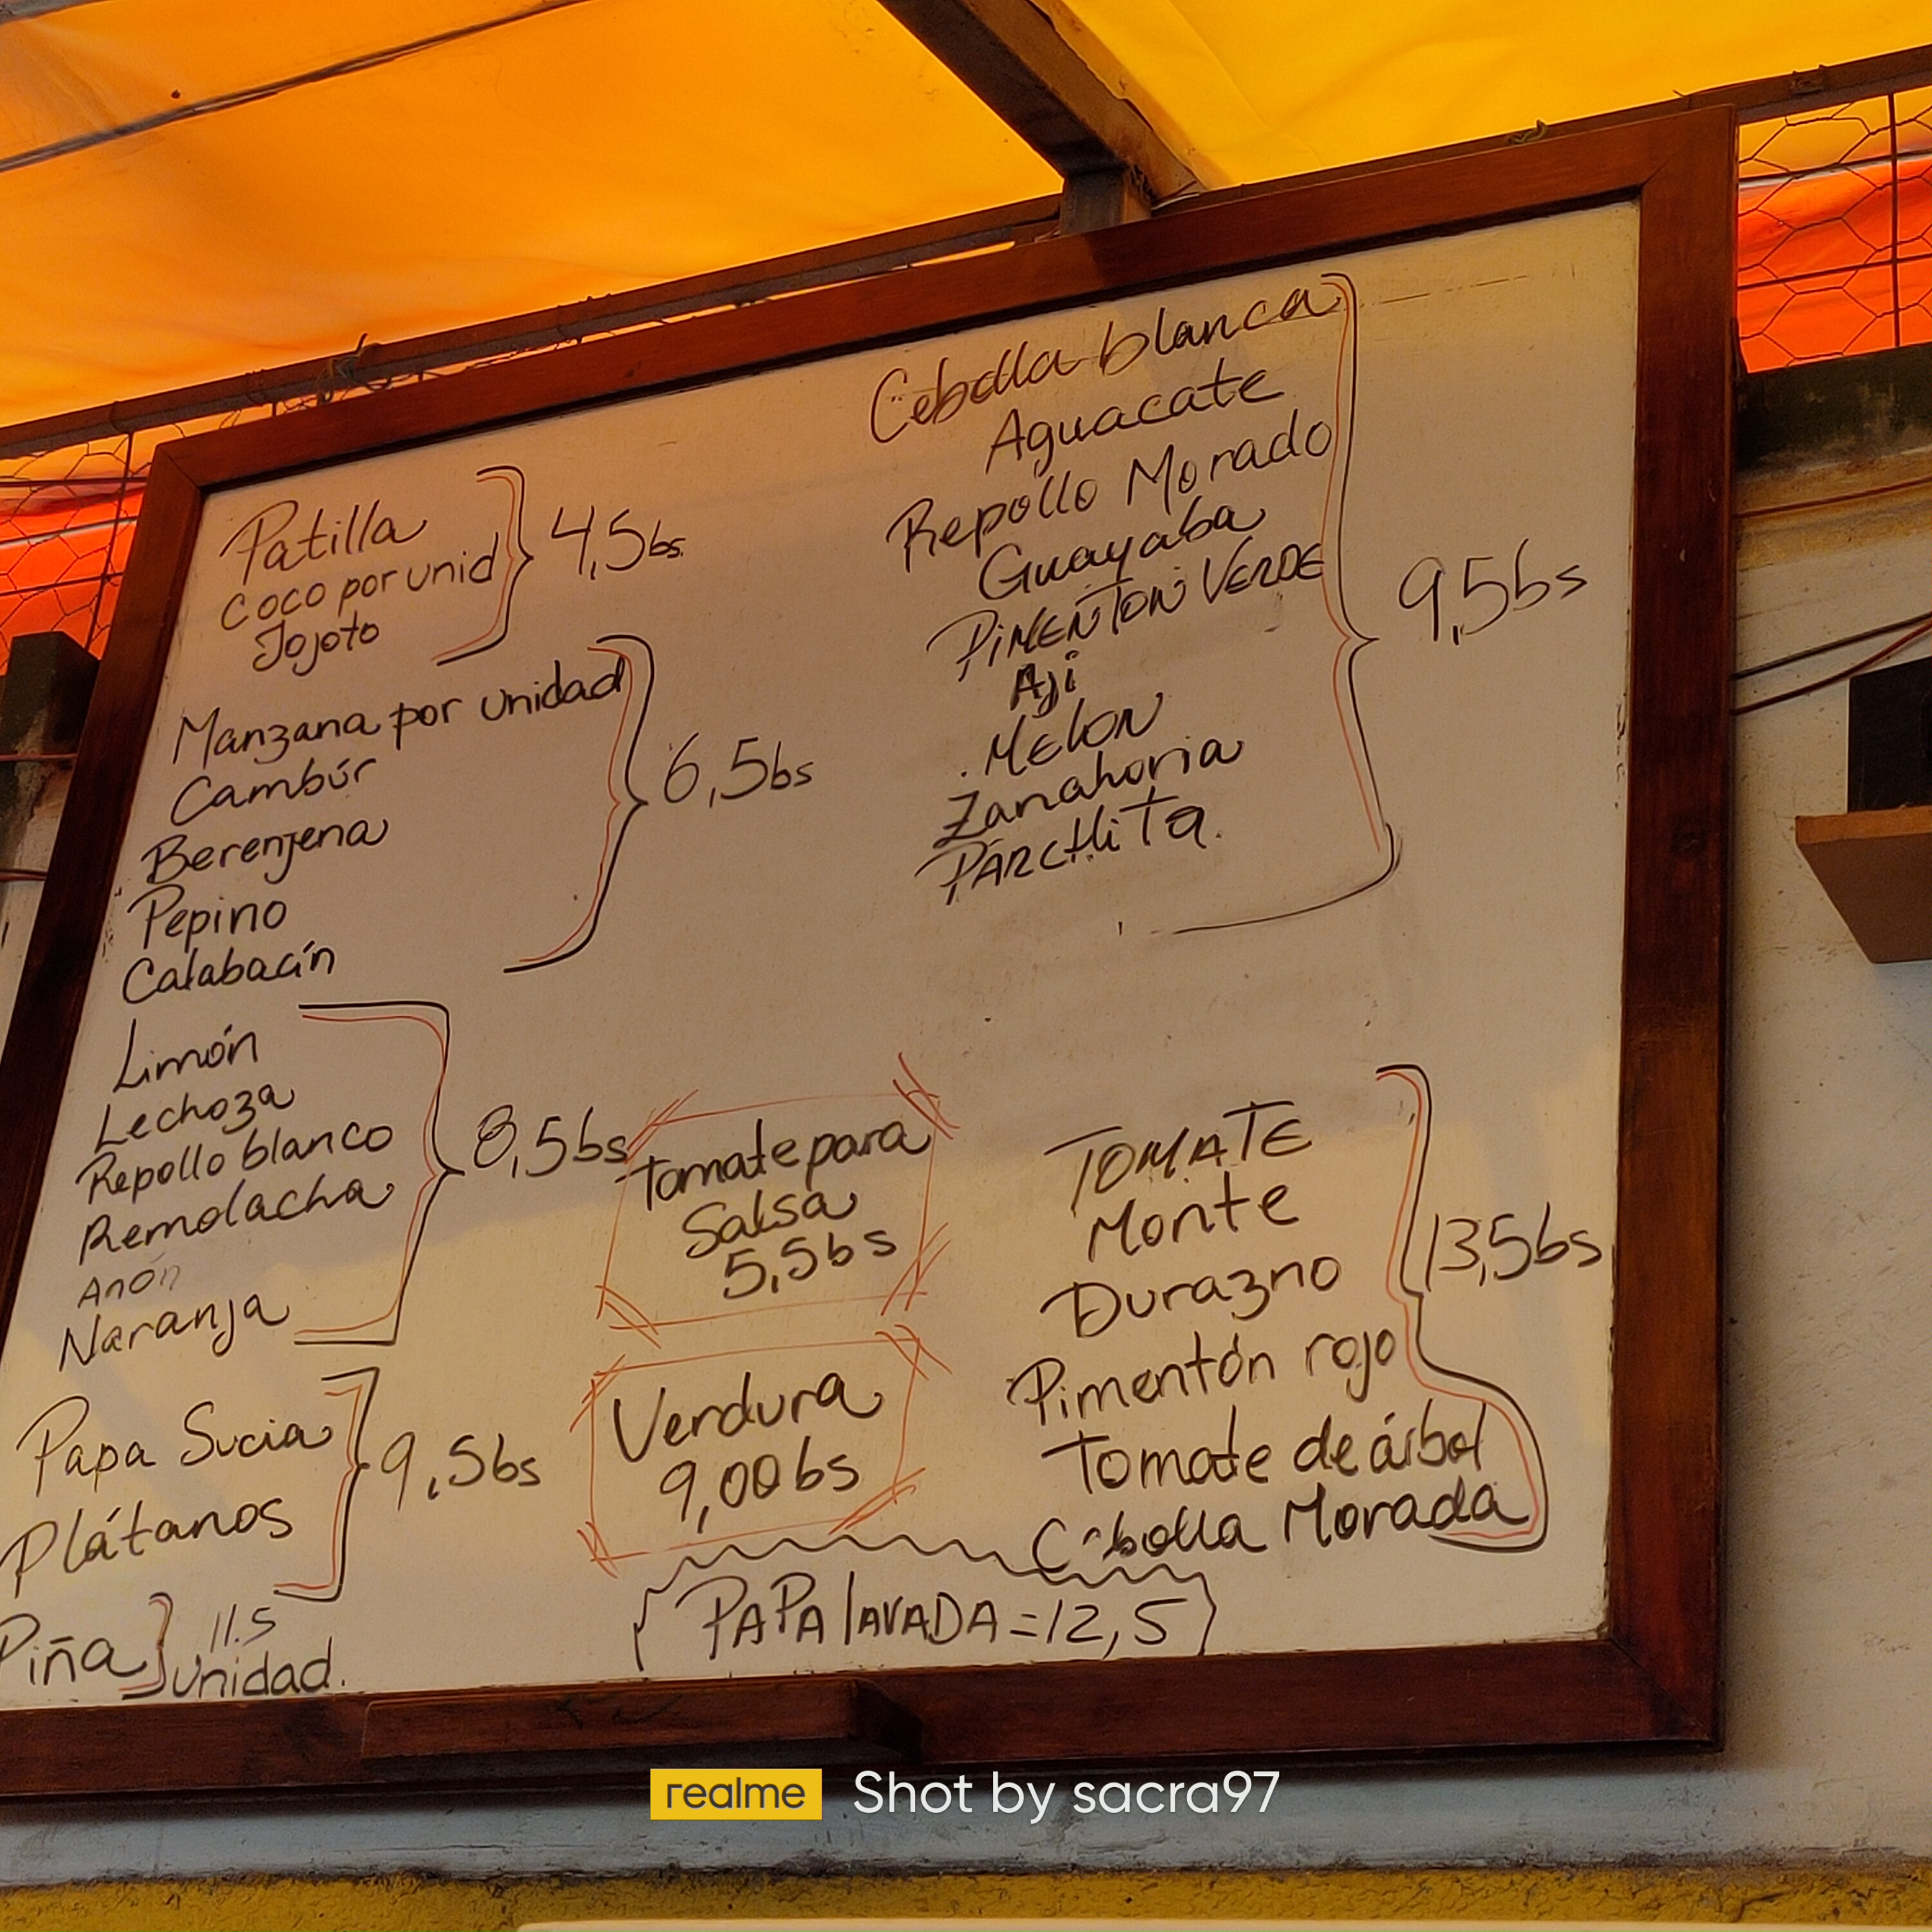 Patilla
Coco por unid
Jojoto
4,5bs.
Manzana por unidad
Cambúr
Berenjena
Pepino
Calabacín
6,5bs
Limón
Lechoza
Repollo blanco
Remolacha
Anón
Naranja
8,5bs
Papa Sucia
Plátanos
9,5bs
Piña
11.5
unidad.
Tomate para
Salsa
5,5bs
Verdura
9,00bs
PAPA lAVADA = 12,5
Cebolla blanca
Aguacate
Repollo Morado
Guayaba
PiMENTON VERDE
Aji
MELON
Zanahoria
PARCHiTa.
9,5bs
TOMATE
Monte
Durazno
Pimentón rojo
Tomate de árbol
Cebolla Morada
13,5bs
realme Shot by sacra97